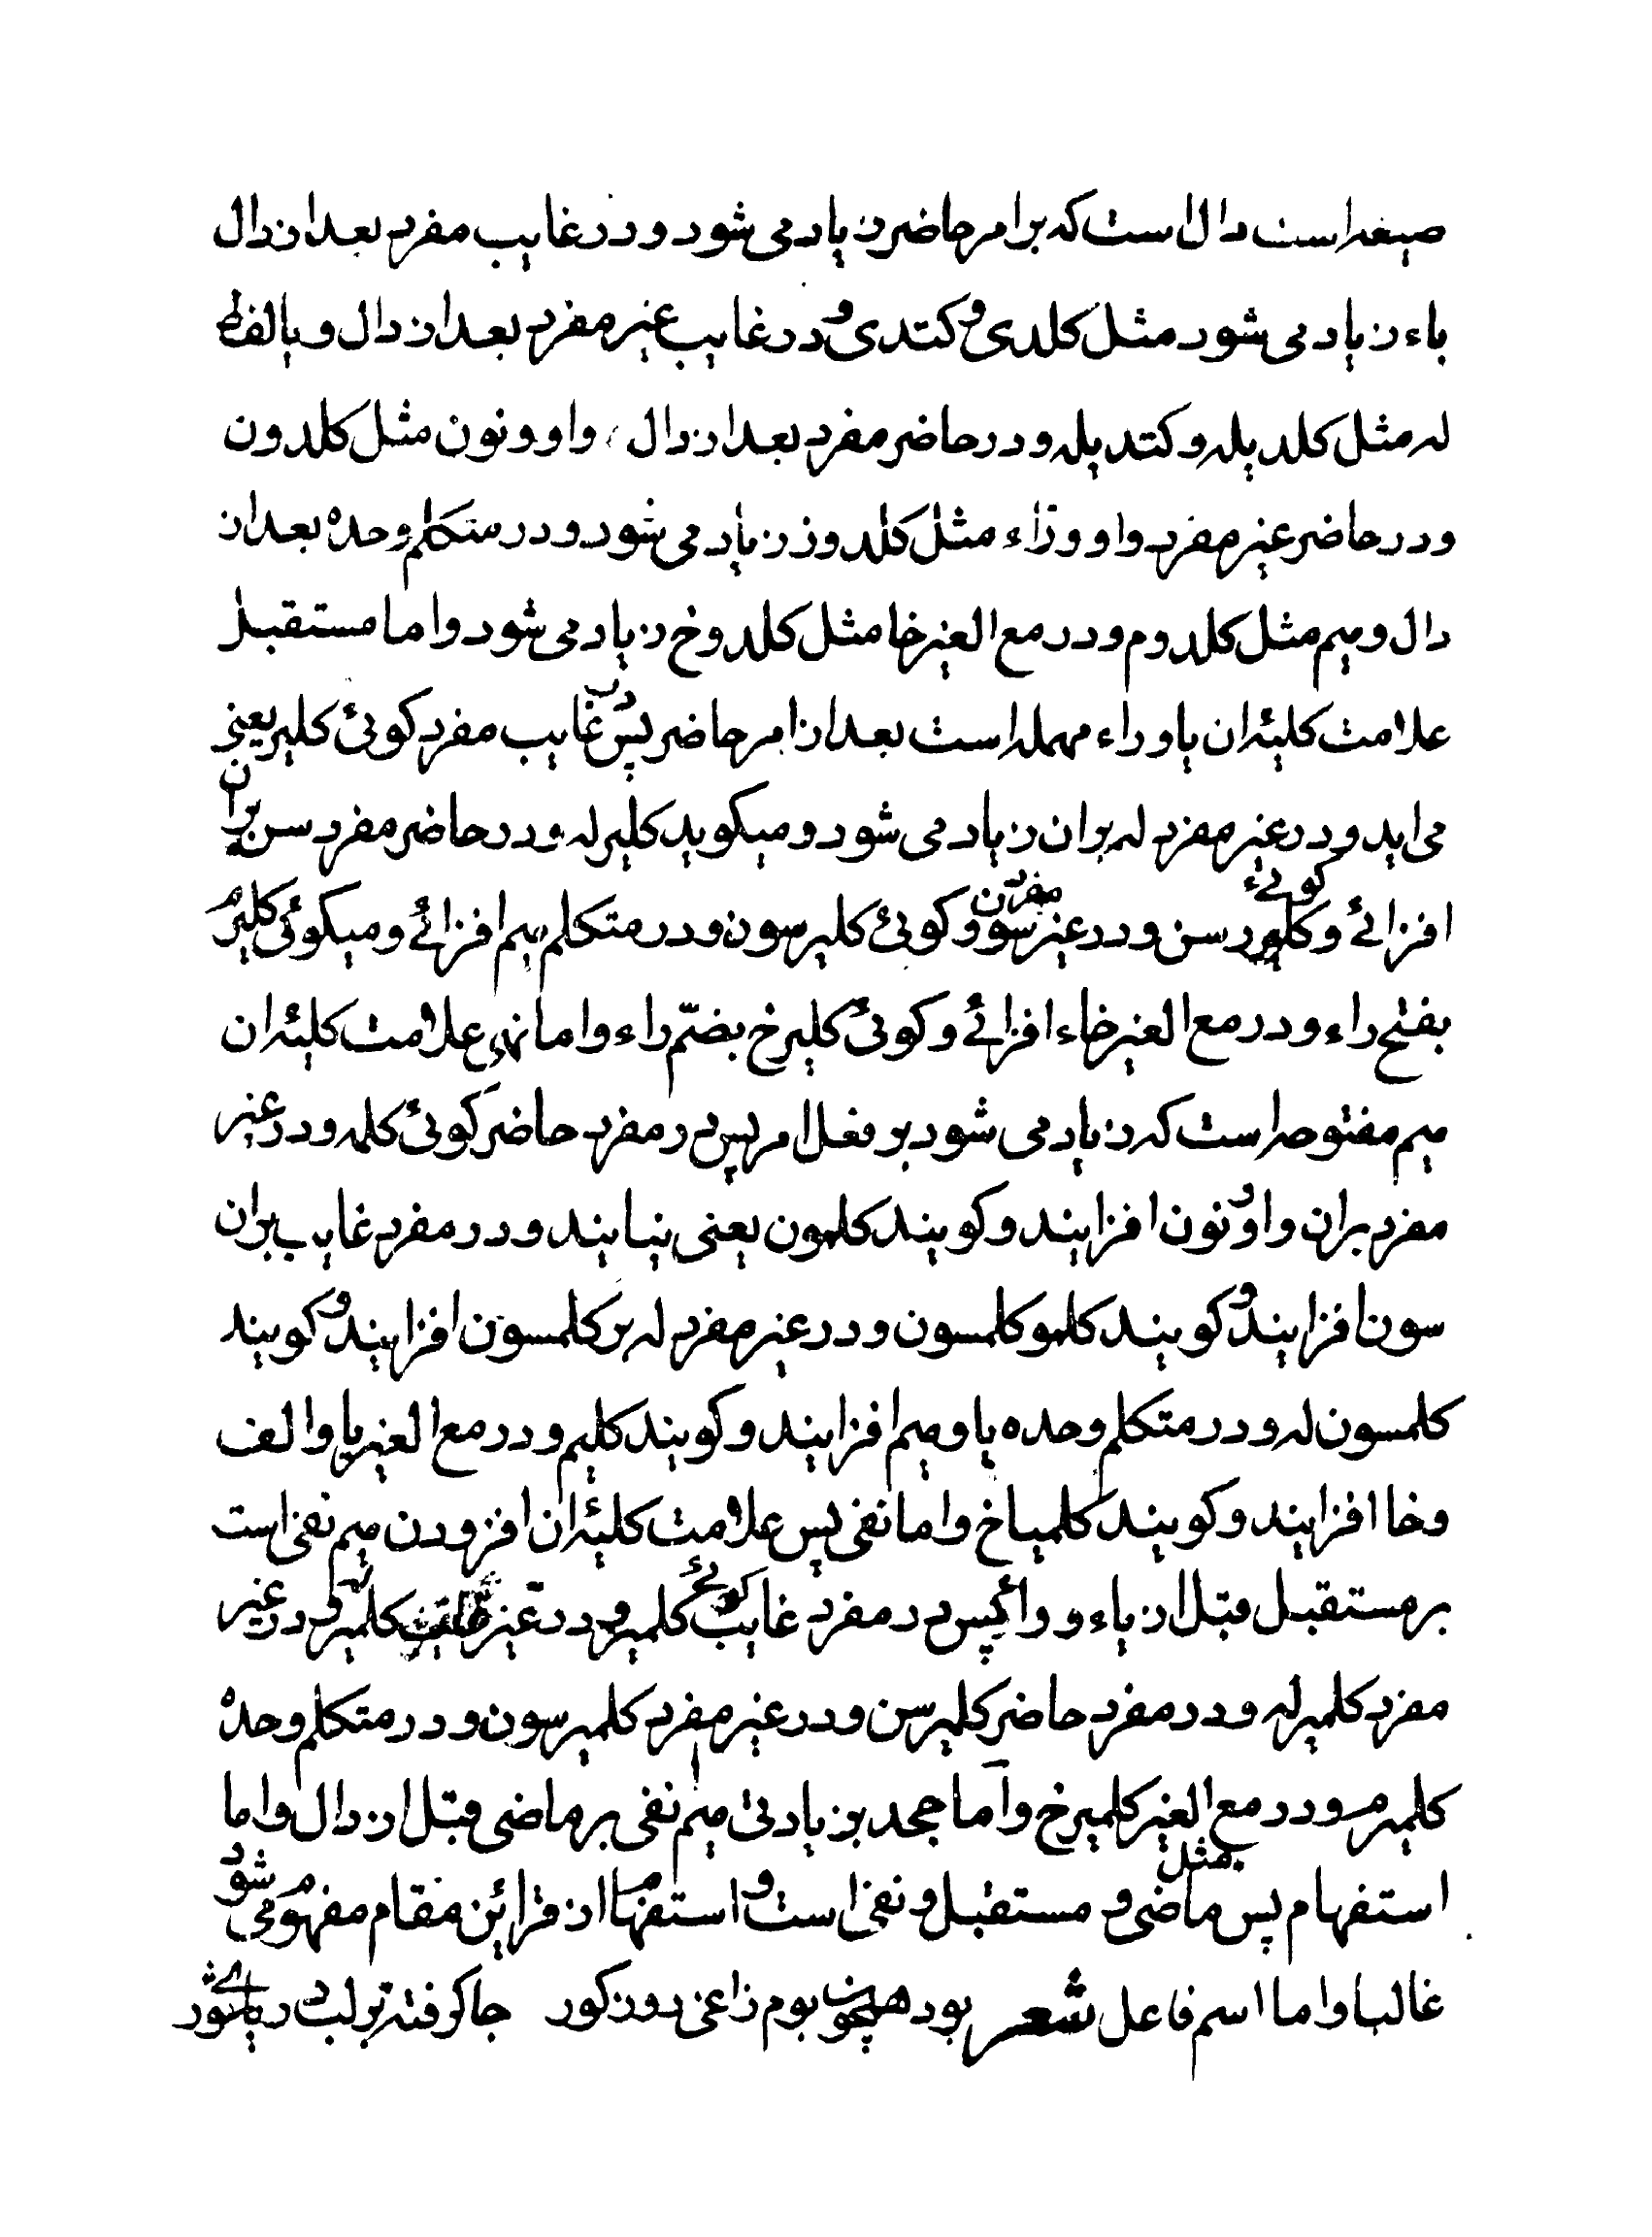 صیغه است دال است که بر امر حاضر زیاد می شود و در غایب مفرد بعد از دال
یاء زیاد می شود مثل کلدی و کتدی و در غایب غیر مفرد بعد از دال و یا لفظ
له مثل کلدیله و کتدیله و در حاضر مفرد بعد از دال واو و نون مثل کلدون
و در حاضر غیر مفرد واو و زاء مثل کلدوز زیاد می شود و در متکلم وحده بعد از
دال و میم مثل کلدوم و در مع الغیر خا مثل کلدوخ زیاد می شود و اما مستقبل
علامت کلیه ان یا و راء مهمله است بعد از امر حاضر پس در غایب مفرد کوئی کلیر یعنی
می اید و در غیر مفرد له بر ان زیاد می شود و میکوید کلیرله و در حاضر مفرد سن بر ان
افزائے و کوئے کلیر سن و در غیر مفرد سون و کوئی کلیر سون و در متکلم میم افزائے و میکوئی کلیرم
بفتح راء و در مع الغیر خاء افزائے و کوئی کلیرخ بضمّ راء و اما نهی علامت کلیه ان
میم مفتوحه است که زیاد می شود بر فعل امر پس در مفرد حاضر کوئی کلمه و در غیر
مفرد بر ان واو و نون افزایند و کویند کلمون یعنی نیایند و در مفرد غایب بر ان
سون افزایند و کویند کلمو کلمسون و در غیر مفرد له بر کلمسون افزایند و کویند
کلمسون له و در متکلم وحده یا و میم افزایند و کویند کلیم و در مع الغیر یا و الف
و خا افزایند و کویند کلمیاخ و اما نفی پس علامت کلیه ان افزودن میم نفی است
بر مستقبل قبل از یاء و راء پس در مفرد غایب کوئے کلمیر و در غیر کلمیر و در غیر
مفرد کلمیر له و در مفرد حاضر کلیر سن و در غیر مفرد کلمیر سون و در متکلم وحده
کلمیرم و در مع الغیر کلمیرخ و اما جحد بزیادتی میم نفی بر ماضی قبل از دال و اما
استفهام پس مثل ماضی و مستقبل و نفی است و استفهام از قرائن مقام مفهوم می شود
غالبا و اما اسم فاعل شعر بود همچون بوم زاغی روز کور جا کرفته بر لب دریای شور